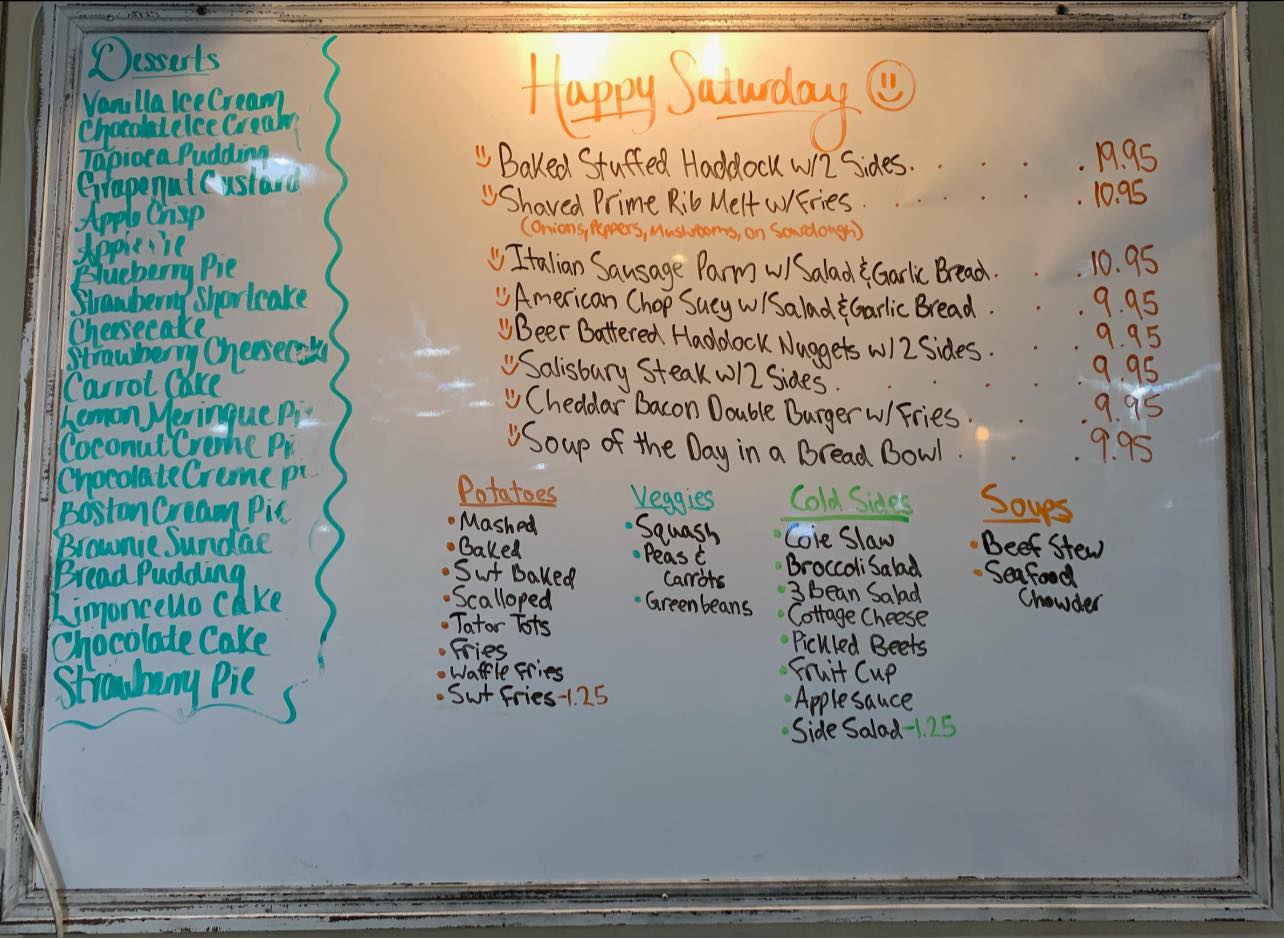 Desserts
Vanilla Ice Cream
Chocolate Ice Cream
Tapioca Pudding
Grapenut Custard
Apple Crisp
Apple Pie
Blueberry Pie
Strawberry Shortcake
Cheesecake
Strawberry Cheesecake
Carrot Cake
Lemon Meringue Pi
Coconut Creme Pi
Chocolate Creme Pi
Boston Cream Pie
Brownie Sundae
Bread Pudding
Limoncello Cake
Chocolate Cake
Strawberry Pie
Happy Saturday
Baked Stuffed Haddock w/2 Sides. . . . . 19.95
Shaved Prime Rib Melt w/Fries . . . . . 10.95
(Onions, Peppers, Mushrooms, on Sourdough)
Italian Sausage Parm w/Salad & Garlic Bread. . . 10.95
American Chop Suey w/Salad & Garlic Bread . . . 9.95
Beer Battered Haddock Nuggets w/2 Sides . . . 9.95
Salisbury Steak w/2 Sides . . . . . . 9.95
Cheddar Bacon Double Burger w/Fries . . . 9.95
Soup of the Day in a Bread Bowl . . . 9.95
Potatoes
• Mashed
• Baked
• Swt Baked
• Scalloped
• Tator Tots
• Fries
• Waffle Fries
• Swt Fries-1.25
Veggies
• Squash
• Peas &
Carrots
• Greenbeans
Cold Sides
• Cole Slaw
• Broccoli Salad
• 3 Bean Salad
• Cottage Cheese
• Pickled Beets
• Fruit Cup
• Applesauce
• Side Salad-1.25
Soups
• Beef Stew
• Seafood
Chowder